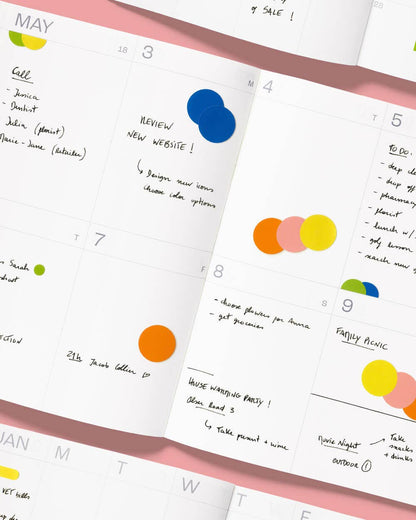 of SALE !
28
MAY
18
Call
- Jessica
- Dentist
Julia (florist)
Marie-Jane (retailer)
3
M
REVIEW
NEW WEBSITE !
↳ Design new icons
choose color options
4
T
5
TO DO
- deep
- drop off
- pharmacy
- florist
- lunch w/
- golf lesson
- search new
T
Sarah
7
F
21h Jacob Collier ♡
8
S
- choose flowers for Anna
- get groceries
HOUSE WARMING PARTY !
Road 3
↳ Take present + wine
9
FAMILY PICNIC
Movie Night
OUTDOOR
→ Take
snacks
+ drinks
JAN
M
T
W
T
F
VET bills